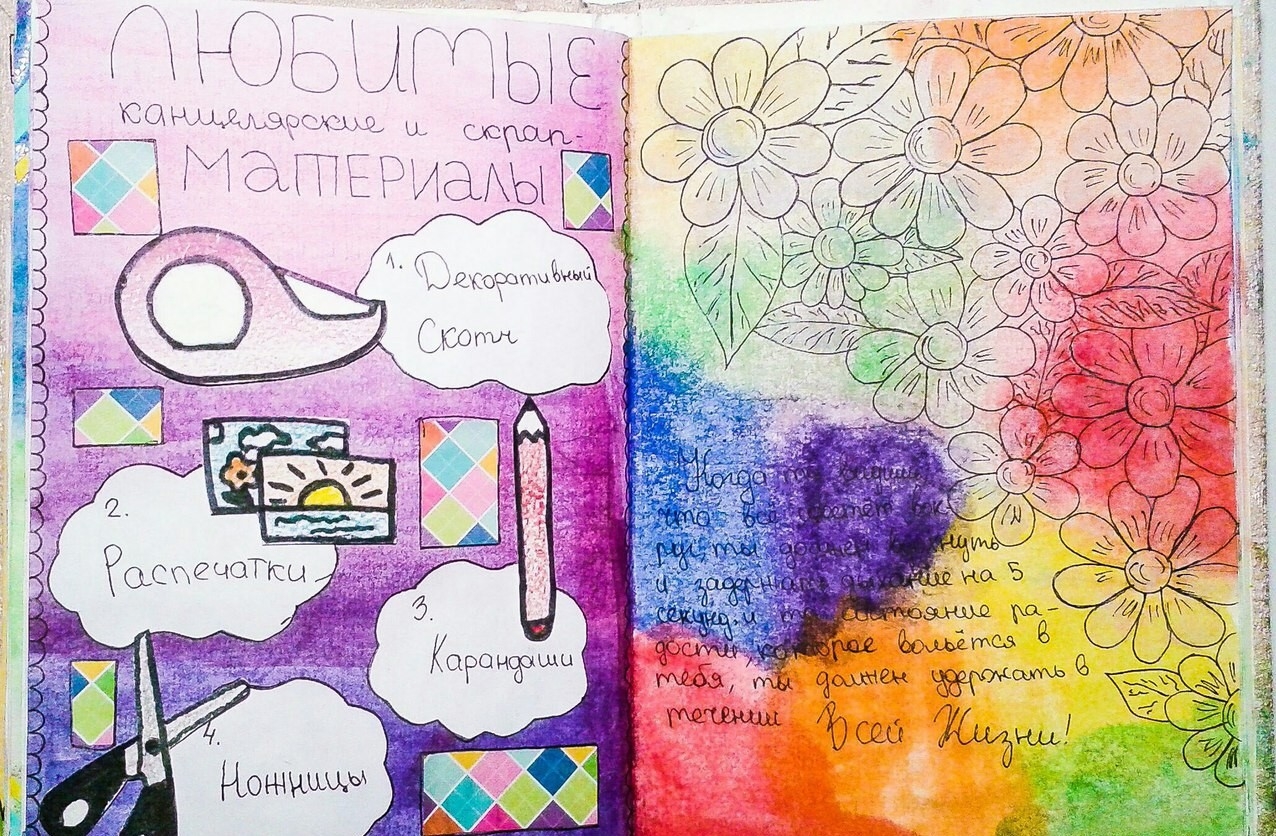 Любимые
канцелярские и скрап-
материалы
1. Декоративный
Скотч
2.
Распечатки
3.
Карандаши
4.
Ножницы
Когда ты видишь,
что всё цветёт вок
руг, ты должен
и задержать дыхание на 5
секунд. и то состояние ра-
дости, которое вольётся в
тебя, ты должен удержать в
течении Всей Жизни!